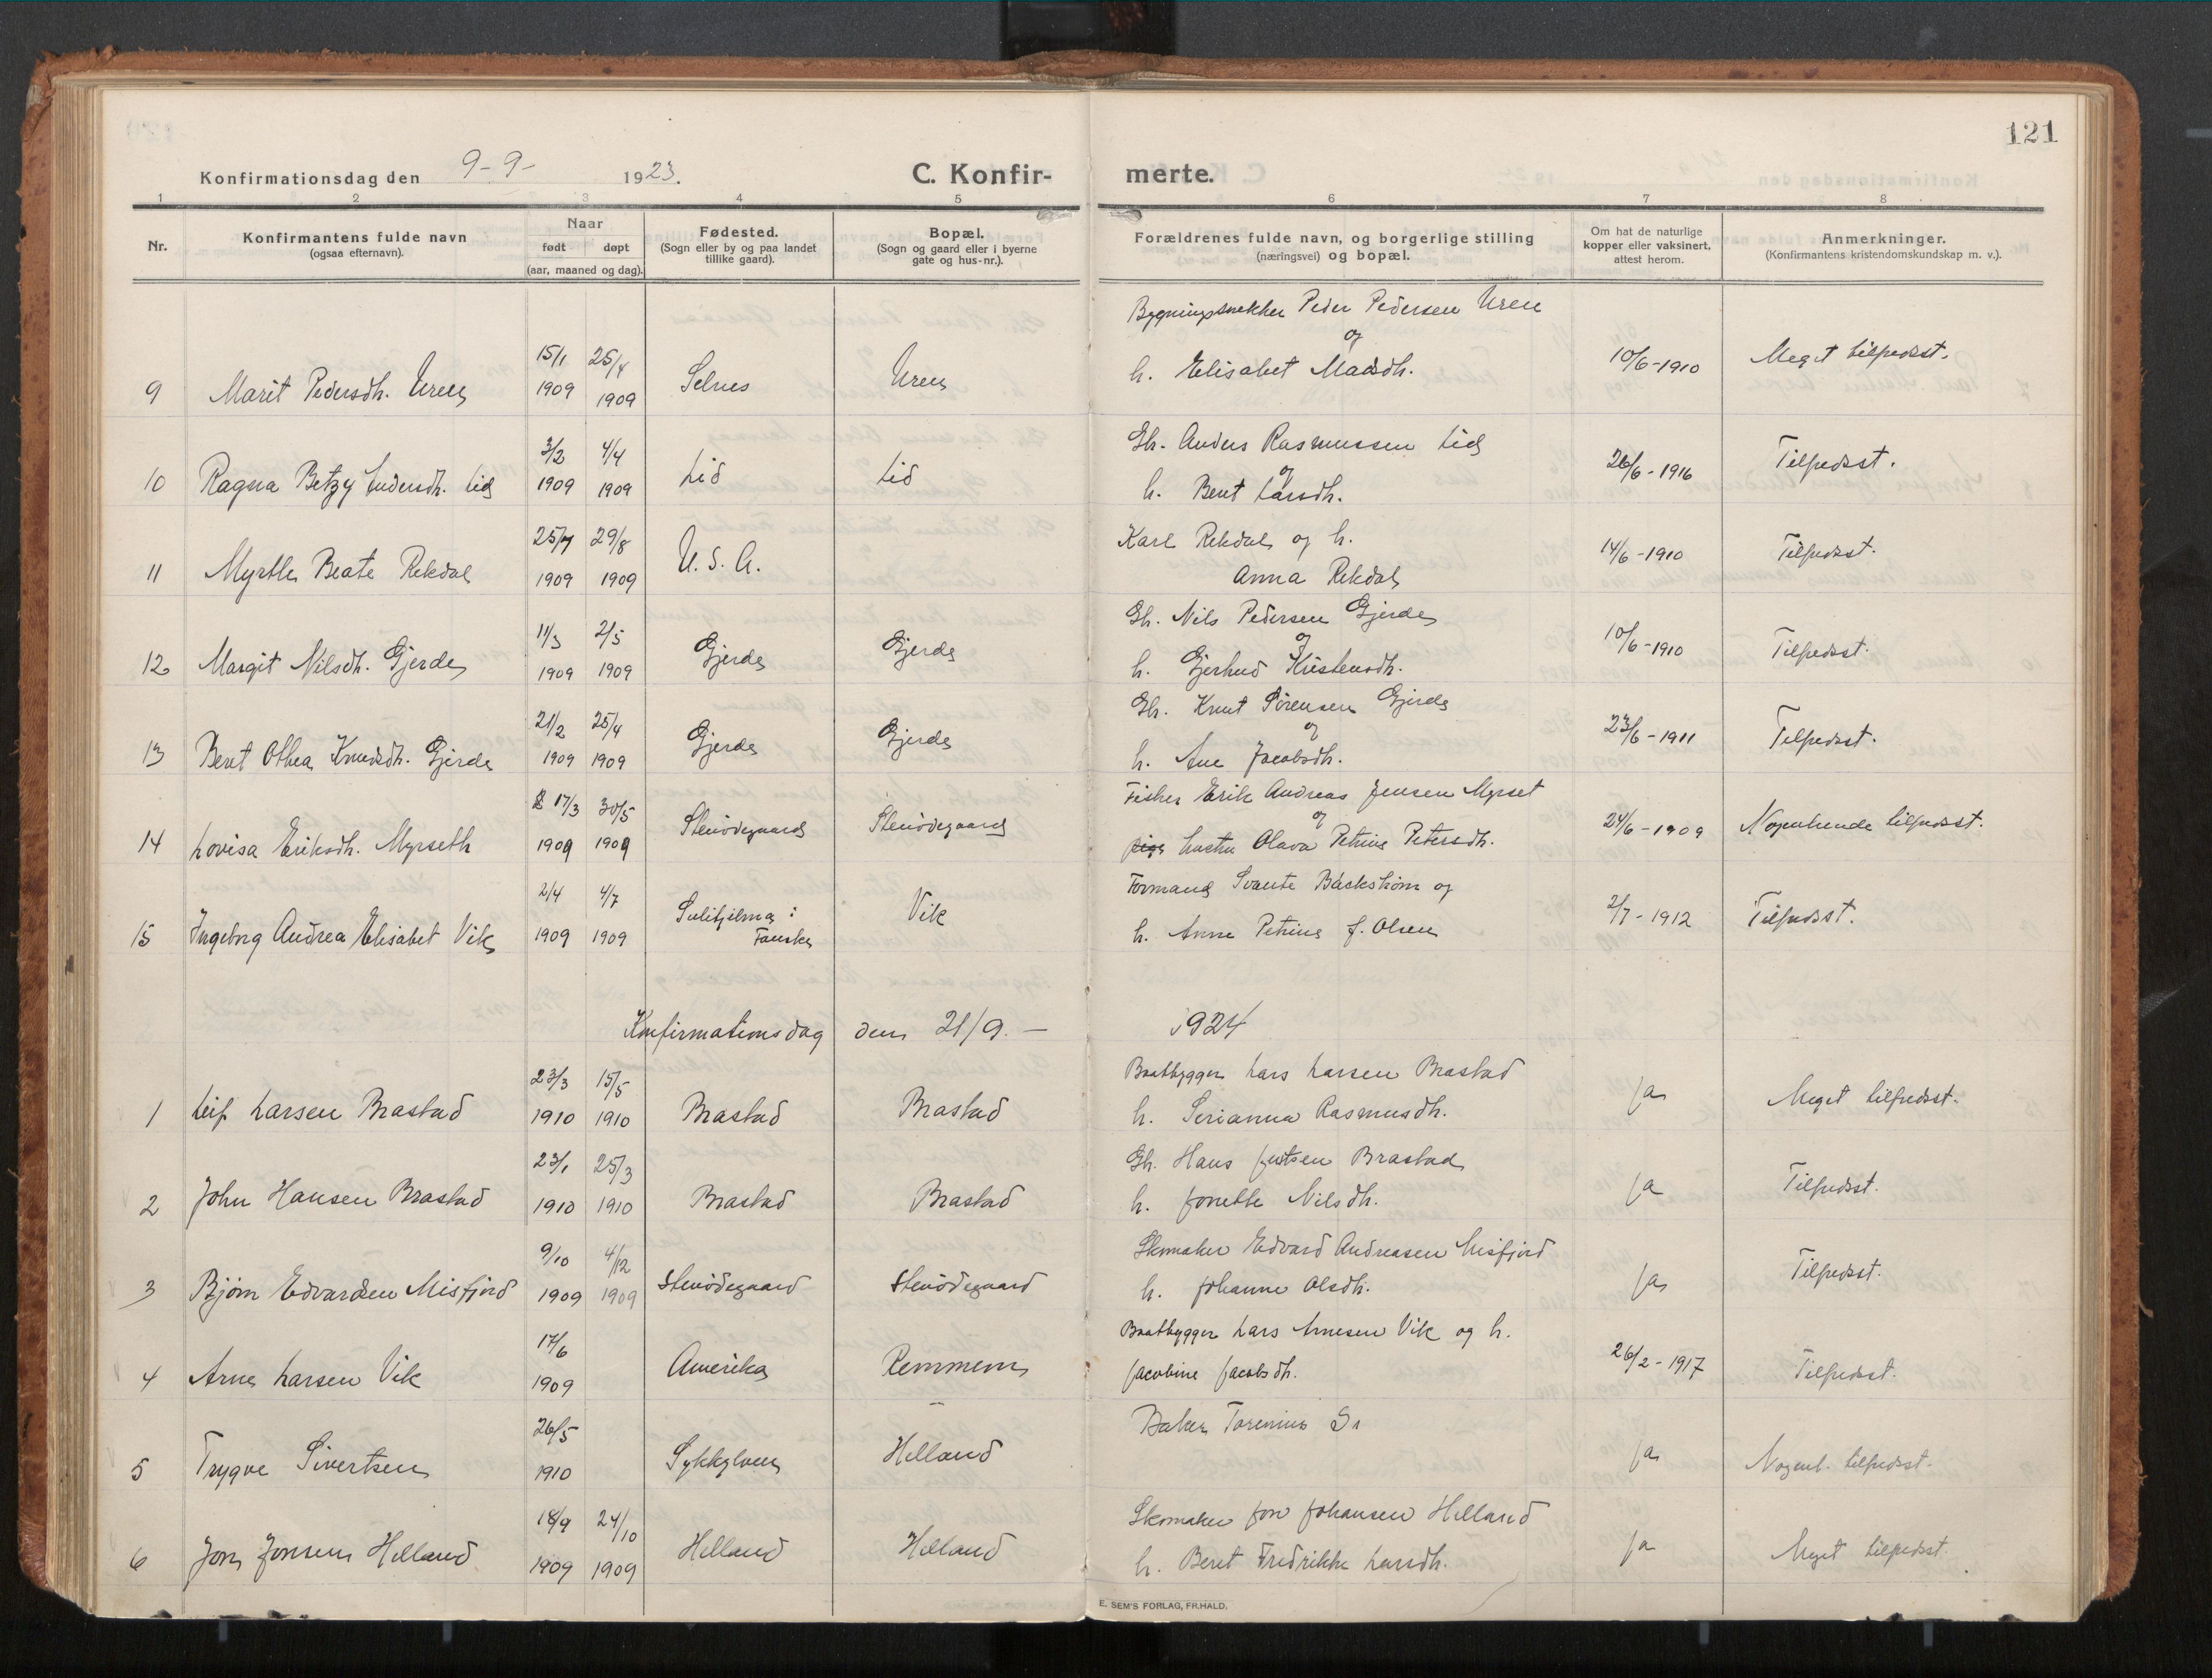 121
Konfirmationsdag den 9-9- 1923. C. Konfir- merte.
1 2 3 4 5 6 7 8
Nr.
Konfirmantens fulde navn
(ogsaa efternavn).
Naar
født døpt
(aar, maaned og dag).
Fødested.
(Sogn eller by og paa landet
tillike gaard).
Bopæl.
(Sogn og gaard eller i byerne
gate og hus-nr.).
Forældrenes fulde navn, og borgerlige stilling
(næringsvei) og bopæl.
Om hat de naturlige
kopper eller vaksinert,
attest herom.
Anmerkninger.
(Konfirmantens kristendomskundskap m. v.).
Bygningssnekker Peder Pedersen Uren
og
15/1 25/4 10/6-1910 Meget tilfredsst.
9 Marit Pedersdh. Uren 1909 1909 Selnes Uren h. Elisabet Madsdh.
3/2 4/4 Gbr. Anders Rasmussen Lid
og
10 Ragna Betzy Andersdh. Lid 1909 1909 Lid Lid h. Beret Larsdh. 26/6-1916 Tilfredsst.
25/7 29/8 Karl Rekdal og h.
11 Myrtle Beate Rekdal 1909 1909 U.S.A. Anna Rekdal 14/6-1910 Tilfredsst.
11/3 2/5 Gbr. Nils Pedersen Gjerde
og
12 Margit Nilsdh. Gjerde 1909 1909 Gjerde Gjerde h. Gjerhud Kristensdh. 10/6-1910 Tilfredsst.
21/2 25/4 Gbr. Knut Sørensen Gjerde
og
13 Beret Othea Knudsdh. Gjerde 1909 1909 Gjerde Gjerde h. Ane Jacobsdh. 23/6-1911 Tilfredsst.
17/3 30/5 Fisker Erik Andreas Jensen Myrset
og
14 Lovisa Eriksdh. Myrseth 1909 1909 Stenødegaard Stenødegaard hustru Olava Petrine Petersdh. 24/6-1909 Nogenlunde tilfredsst.
2/4 4/7 Formand Svante Bäckstrøm og
15 Ingebrg Andrea Elisabet Vik 1909 1909 Sulitjelma i
Fauske Vik h. Anne Petrine f. Olsen 2/7-1912 Tilfredsst.
Konfirmationsdag den 21/9.- 1924
23/3 15/5 Baatbygger Lars Larsen Brastad
1 Leif Larsen Brastad 1910 1910 Brastad Brastad h. Serianna Rasmusdh. ja Meget tilfredsst.
23/1 25/3 Gbr. Hans Jentsen Brastad
2 John Hansen Brastad 1910 1910 Brastad Brastad h. Jonette Nilsdh. ja Tilfredsst.
9/10 4/12 Skomaker Edvard Andreasen Misfjord
3 Bjørn Edvardsen Misfjord 1909 1909 Stenødegaard Stenødegaard h. Johanne Olsdh. ja Tilfredsst.
17/6 Baatbygger Lars Arnesen Vik og h.
4 Arne Larsen Vik 1909 Amerika Remmem Jacobine Jacobsdh. 26/2-1917 Tilfredsst.
26/5 Baker
5 Trygve Sivertsen 1910 Sykkylven Helland ja Nogenl. tilfredsst.
18/9 24/10 Skomaker Jon Johansen Helland
6 Jon Jonsen Helland 1909 1909 Helland Helland h. Beret Fredrikke Larsdh. ja Meget tilfredsst.
E. SEM'S FORLAG, FR.HALD.